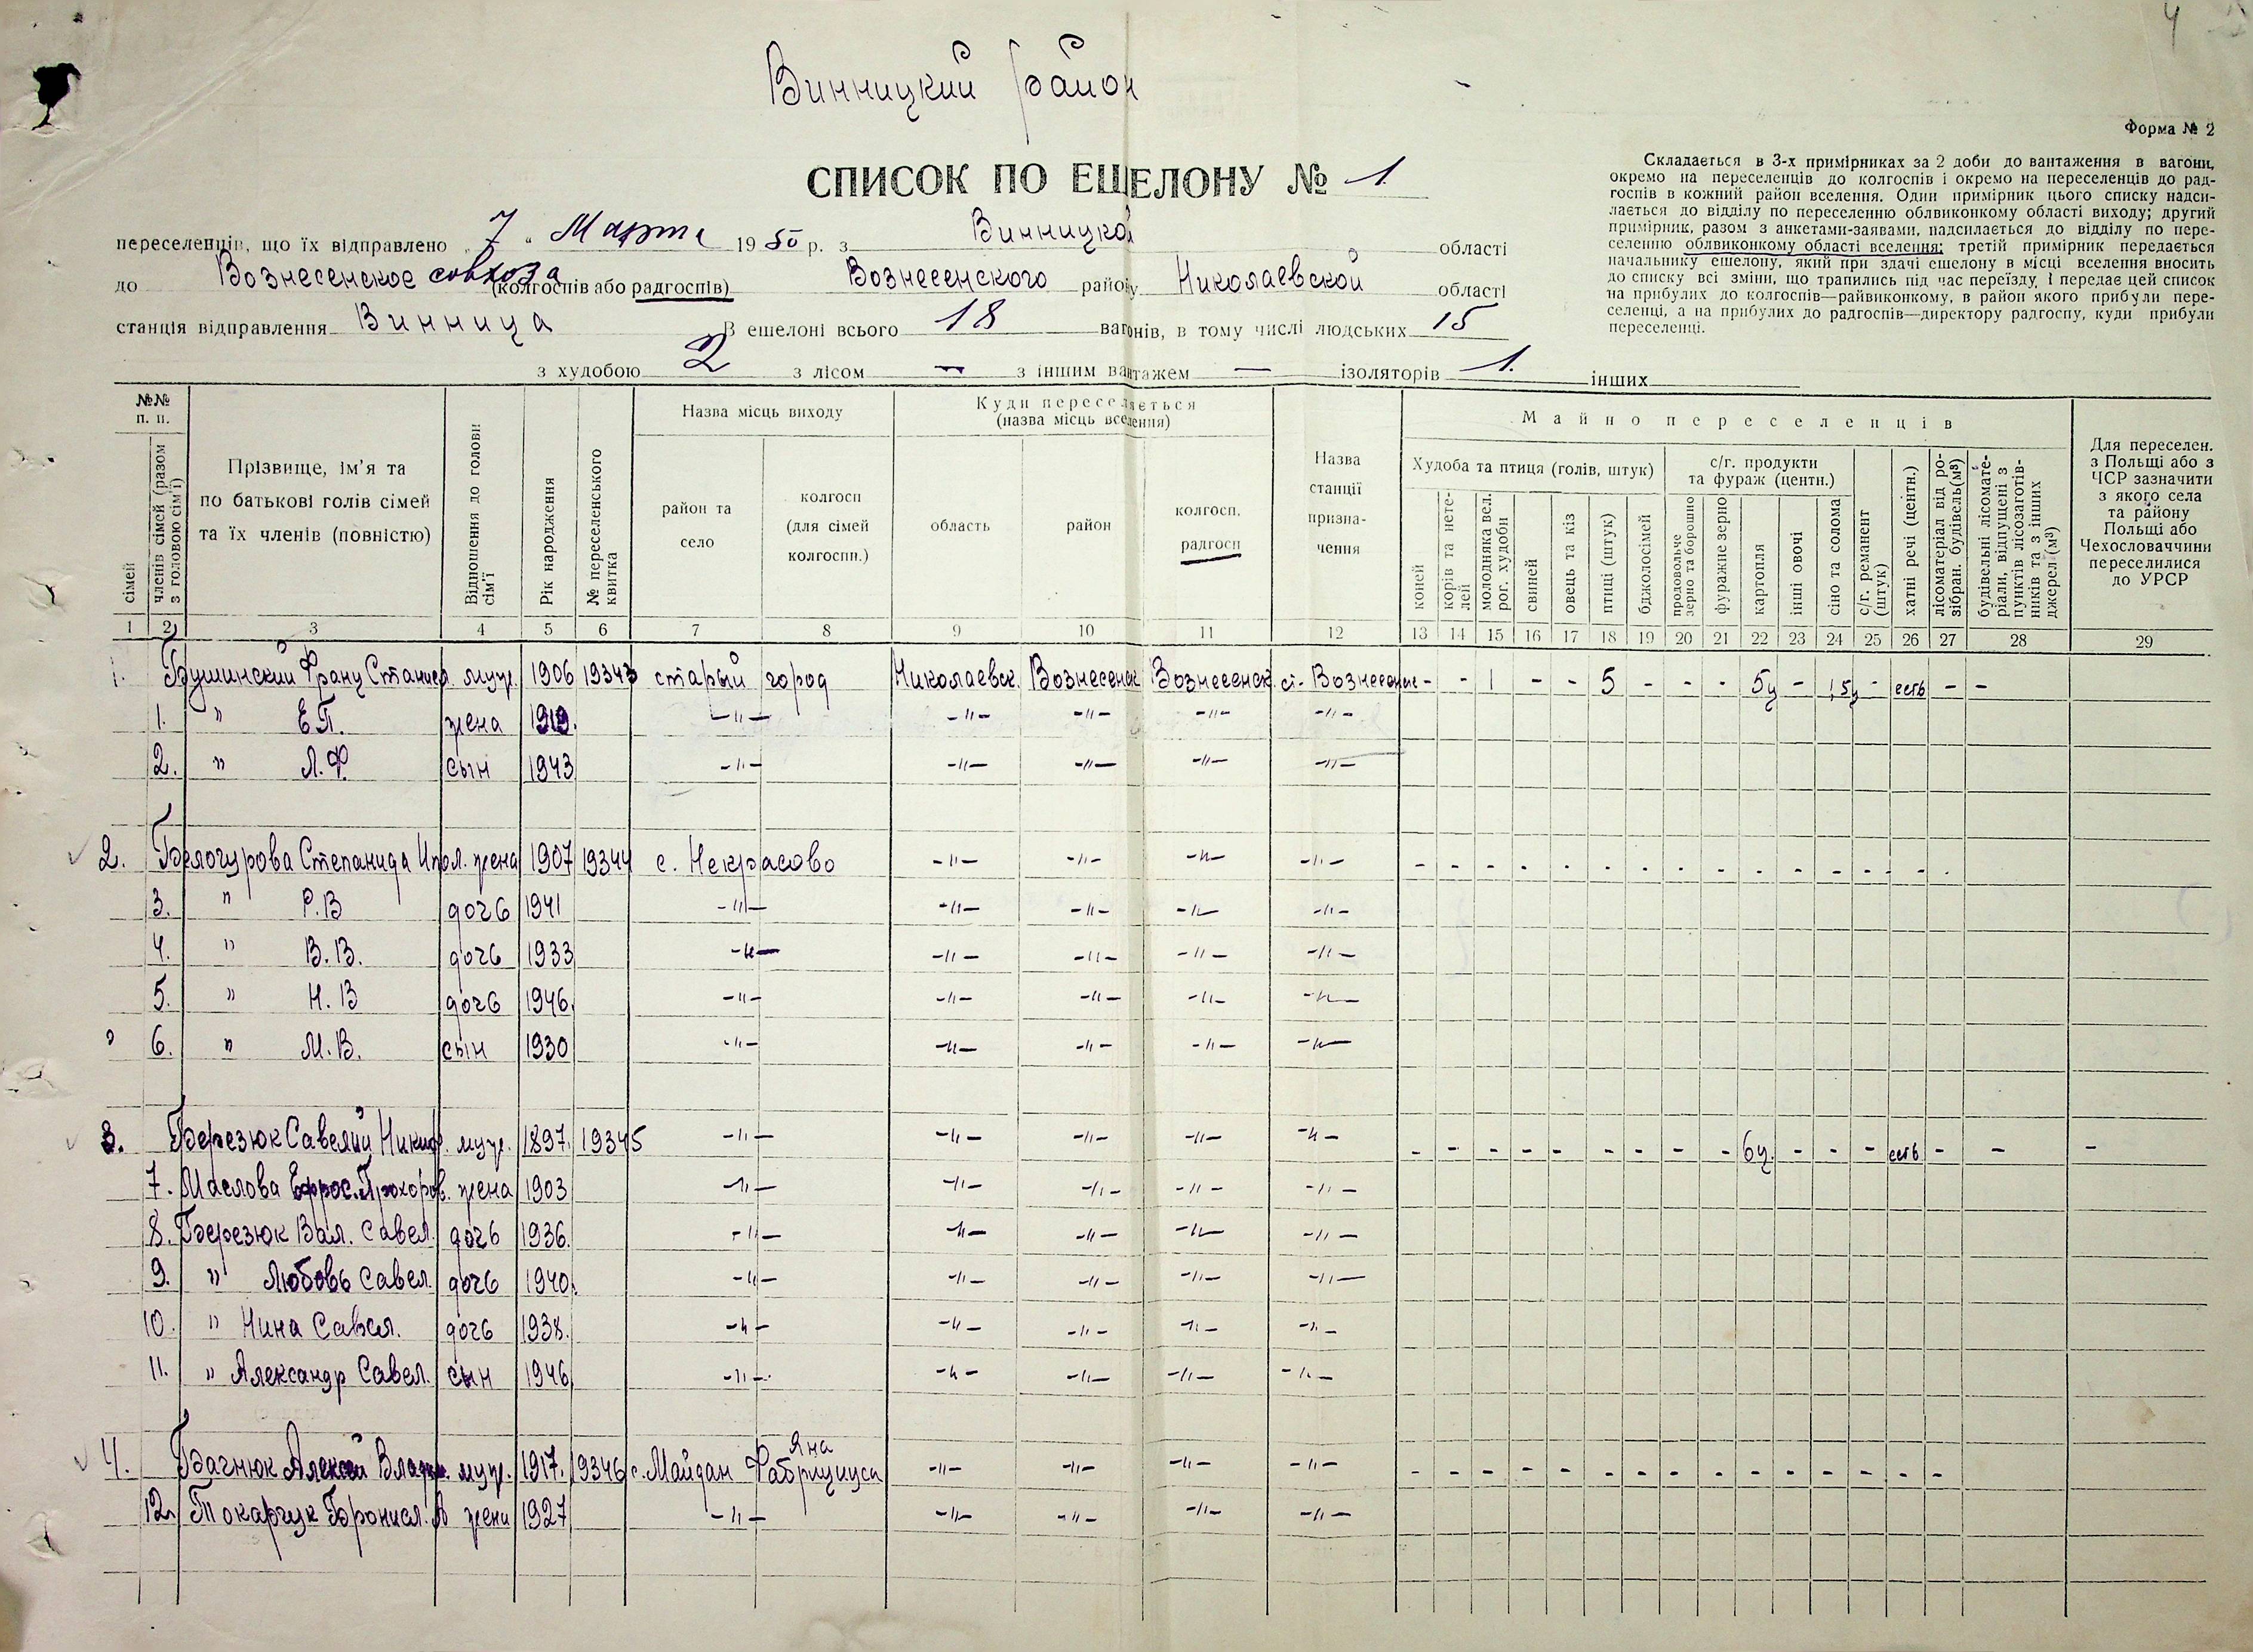 4
Винницкий район
Форма № 2
СПИСОК ПО ЕШЕЛОНУ № 1.
Складається в 3-х примірниках за 2 доби до вантаження в вагони,
окремо на переселенців до колгоспів і окремо на переселенців до рад-
госпів в кожний район вселення. Один примірник цього списку надси-
лається до відділу по переселенню облвиконкому області виходу; другий
примірник, разом з анкетами-заявами, надсилається до відділу по пере-
селенню облвиконкому області вселення; третій примірник передається
начальнику ешелону, який при здачі ешелону в місці вселення вносить
до списку всі зміни, що трапились під час переїзду, і передає цей список
на прибулих до колгоспів—райвиконкому, в район якого прибули пере-
селенці, а на прибулих до радгоспів—директору радгоспу, куди прибули
переселенці.
переселенців, що їх відправлено „ 7 “ Марта 1950 р. з Винницкой області
до Вознесенское совхоза (колгоспів або радгоспів) Вознесенского району Николаевской області
станція відправлення Винница В ешелоні всього 18 вагонів, в тому числі людських 15
з худобою 2 з лісом — з іншим вантажем — ізоляторів 1. інших
№№ п. п.
сімей
членів сімей (разом з головою сім'ї)
Прізвище, ім'я та по батькові голів сімей та їх членів (повністю)
Відношення до голови сім'ї
Рік народження
№ переселенського квитка
Назва місць виходу
район та село
колгосп (для сімей колгоспн.)
Куди переселяється (назва місць вселення)
область
район
колгосп, радгосп
Назва станції призна- чення
Майно переселенців
Худоба та птиця (голів, штук)
коней
корів та нете- лей
молодняка вел. рог. худоби
свиней
овець та кіз
птиці (штук)
бджолосімей
с/г. продукти та фураж (центн.)
продовольче зерно та борошно
фуражне зерно
картопля
інші овочі
сіно та солома
с/г. реманент (штук)
хатні речі (центн.)
лісоматеріал від ро- зібран. будівель(м³)
будівельні лісомате- ріали, відпущені з пунктів лісозаготів- ників та з інших джерел (м³)
Для переселен. з Польщі або з ЧСР зазначити з якого села та району Польщі або Чехословаччини переселилися до УРСР
1 2 3 4 5 6 7 8 9 10 11 12 13 14 15 16 17 18 19 20 21 22 23 24 25 26 27 28 29
1. Бушинский Франц Станисл. муж. 1906 19343 старый город Николаевск. Вознесенск Вознесенск. ст. Вознесенск - - 1 - - 5 - - - 5ц - 1,5ц - есть - -
1. " Е.П. жена 1919. -"- -"- -"- -"- -"-
2. " Л.Ф. сын 1943 -"- -"- -"- -"- -"-
2. Белогурова Степанида Ипол. жена 1907 19344 с. Некрасово -"- -"- -"- -"- - - - - - - - - - - - - - - -
3. " Р.В дочь 1941 -"- -"- -"- -"- -"-
4. " В.В. дочь 1933 -"- -"- -"- -"- -"-
5. " Н.В дочь 1946. -"- -"- -"- -"- -"-
6. " М.В. сын 1930 -"- -"- -"- -"- -"-
3. Березюк Савелий Никиф. муж. 1897. 19345 -"- -"- -"- -"- -"- - - - - - - - - - 6ц. - - - есть - - -
7. Маслова Ефрос. Прохоров. жена 1903 -"- -"- -"- -"- -"-
8. Березюк Вал. Савел. дочь 1936. -"- -"- -"- -"- -"-
9. " Любовь Савел. дочь 1940. -"- -"- -"- -"- -"-
10. " Нина Савел. дочь 1938. -"- -"- -"- -"- -"-
11. " Александр Савел. сын 1946 -"- -"- -"- -"- -"-
4. Багнюк Алексей Влад. муж. 1917. 19346 с. Майдан Яна Фабрициуса -"- -"- -"- -"- - - - - - - - - - - - - - - -
12. Токарчук Бронисл. А жена 1927 -"- -"- -"- -"- -"-